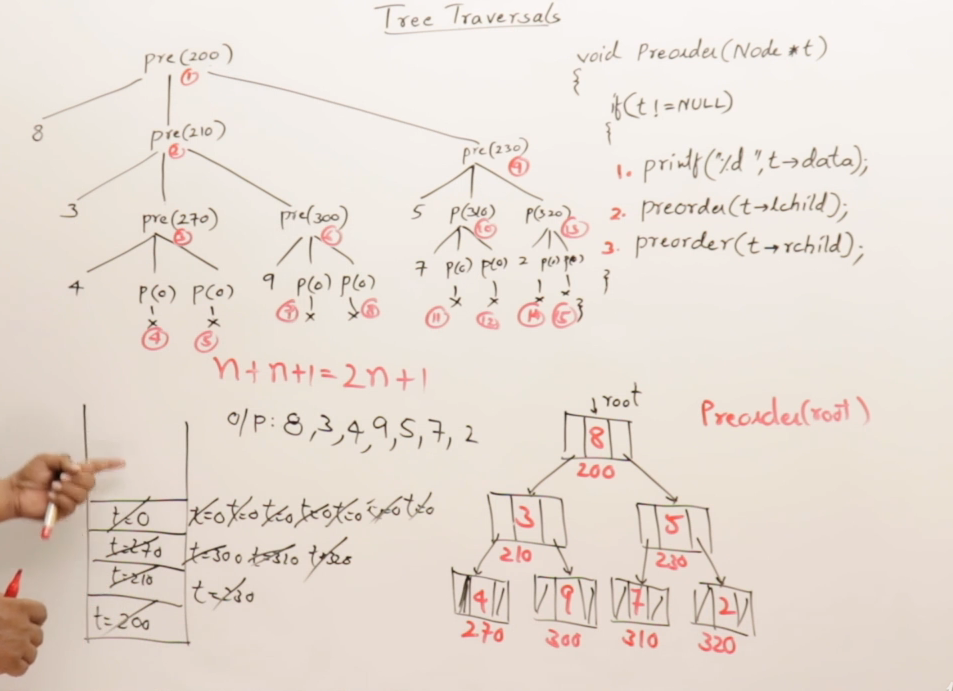 Tree Traversals
pre(200)
①
8
pre(210)
②
pre(230)
⑨
3
pre(270)
③
pre(300)
⑥
5
P(310)
⑩
P(320)
⑬
4
P(0) P(0)
9 P(0) P(0)
7 P(0) P(0)
2 P(0) P(0)
x x x x x x x x
④ ⑤ ⑦ ⑧ ⑪ ⑫ ⑭ ⑮
void Preorder(Node *t)
{
if(t!=NULL)
{
1. printf("%d ",t→data);
2. preorder(t→lchild);
3. preorder(t→rchild);
}
}
n+n+1=2n+1
O/P: 8,3,4,9,5,7,2
t=0 t=0 t=0 t=0 t=0 t=0 t=0 t=0
t=270 t=300 t=310 t=320
t=210 t=230
t=200
root
8
200
3 5
210 230
4 9 7 2
270 300 310 320
Preorder(root)